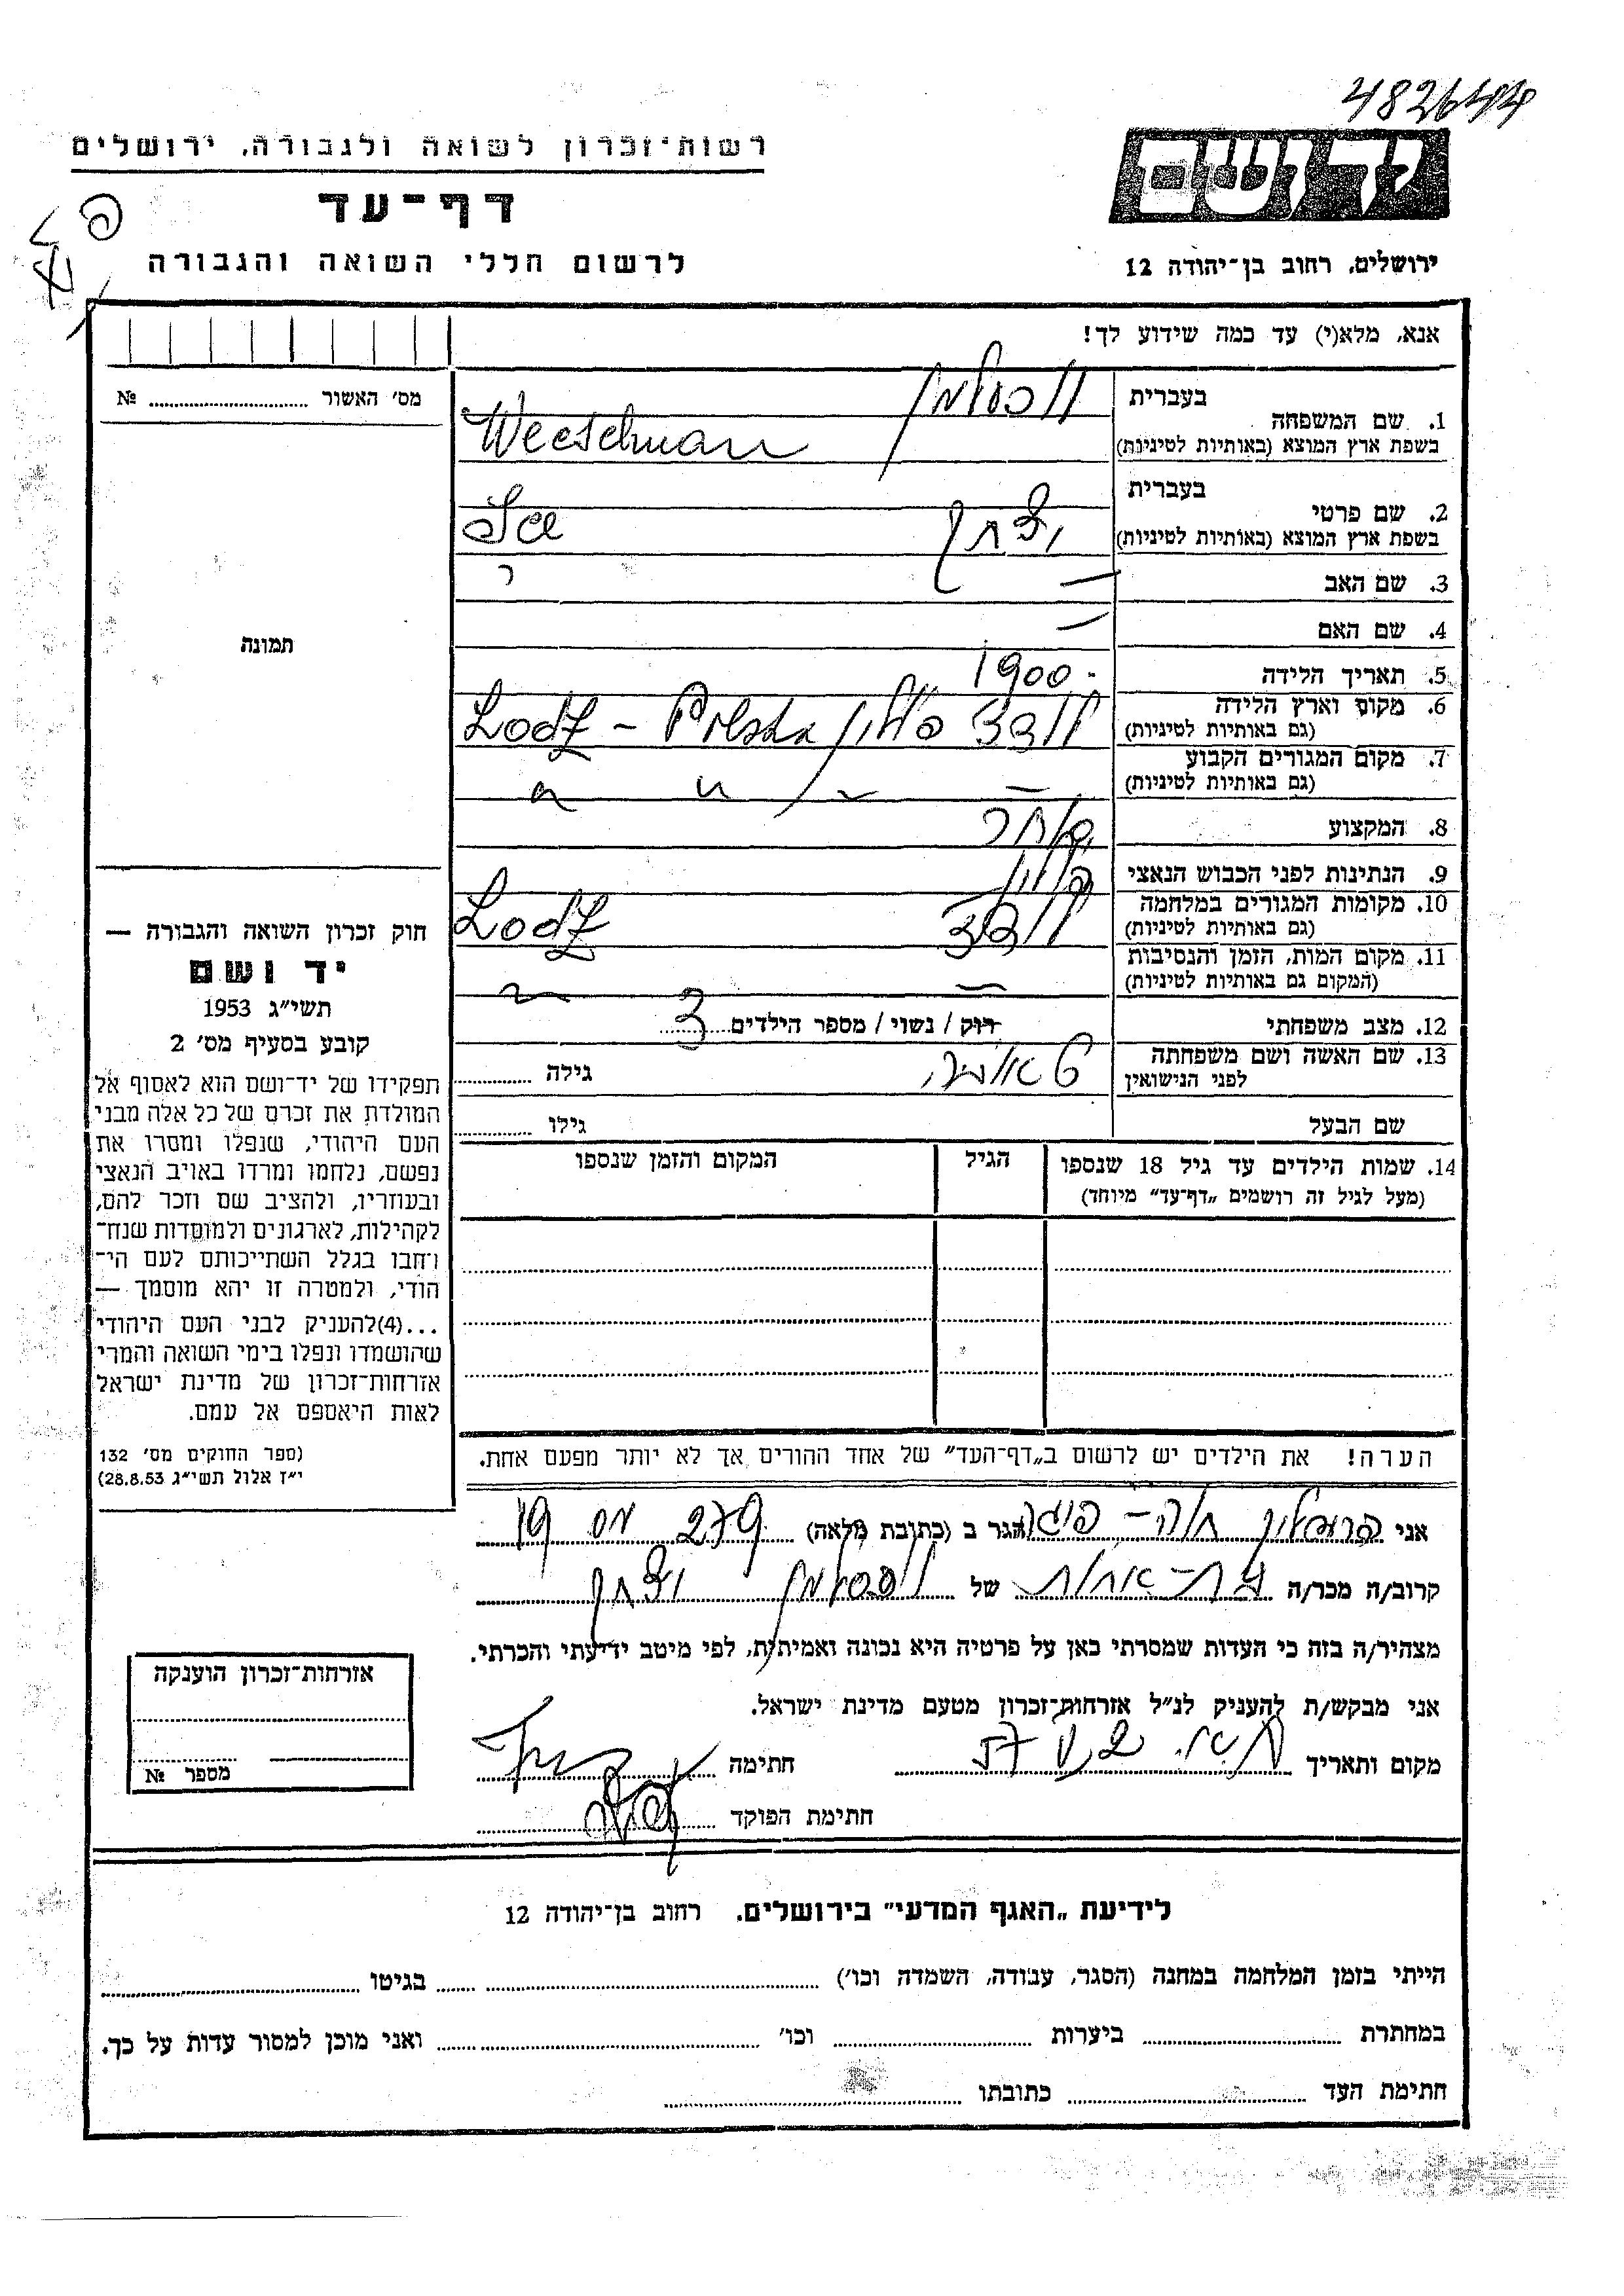 482644
ידושם
רשות־זכרון לשואה ולגבורה, ירושלים
דף־עד
לרשום חללי השואה והגבורה
ירושלים, רחוב בן־יהודה 12
אנא, מלא(י) עד כמה שידוע לך!
מס׳ האשור № 
1. שם המשפחה
בעברית
בשפת ארץ המוצא (באותיות לטיניות)
2. שם פרטי
בעברית
יצחק
בשפת ארץ המוצא (באותיות לטיניות)
3. שם האב –
4. שם האם –
5. תאריך הלידה 1900
6. מקום וארץ הלידה
(גם באותיות לטיניות)
לודז פולין Lodz – Polska
7. מקום המגורים הקבוע
(גם באותיות לטיניות)
8. המקצוע סוחר
9. הנתינות לפני הכבוש הנאצי פולין
10. מקומות המגורים במלחמה
(גם באותיות לטיניות)
לודז Lodz
11. מקום המות, הזמן והנסיבות
(המקום גם באותיות לטיניות)
12. מצב משפחתי רוק / נשוי / מספר הילדים 3
13. שם האשה ושם משפחתה
לפני הנישואין
גילה
שם הבעל גילו
14. שמות הילדים עד גיל 18 שנספו
(מעל לגיל זה רושמים „דף־עד” מיוחד)
הגיל
המקום והזמן שנספו
תמונה
חוק זכרון השואה והגבורה —
יד ושם
תשי״ג 1953
קובע בסעיף מס׳ 2
תפקידו של יד־ושם הוא לאסוף אל
המולדת את זכרם של כל אלה מבני
העם היהודי, שנפלו ומסרו את
נפשם, נלחמו ומרדו באויב הנאצי
ובעוזריו, ולהציב שם וזכר להם,
לקהילות, לארגונים ולמוסדות שנח־
רחבו בגלל השתייכותם לעם הי־
הודי, ולמטרה זו יהא מוסמך —
...(4)להעניק לבני העם היהודי
שהושמדו ונפלו בימי השואה והמרי
אזרחות־זכרון של מדינת ישראל
לאות היאספם אל עמם.
(ספר החוקים מס׳ 132
י״ז אלול תשי״ג 28.8.53)
הערה! את הילדים יש לרשום ב„דף־העד” של אחד ההורים אך לא יותר מפעם אחת.
אני הגר ב (כתובת מלאה) 19
קרוב/ה מכר/ה בת-אחות של יצחק
מצהיר/ה בזה כי העדות שמסרתי כאן על פרטיה היא נכונה ואמיתית, לפי מיטב ידיעתי והכרתי.
אני מבקש/ת להעניק לנ״ל אזרחות־זכרון מטעם מדינת ישראל.
מקום ותאריך חתימה
חתימת הפוקד
אזרחות־זכרון הוענקה
מספר №
לידיעת „האגף המדעי” בירושלים. רחוב בן־יהודה 12
הייתי בזמן המלחמה במחנה (הסגר, עבודה, השמדה וכו׳) בגיטו
במחתרת ביערות וכו׳ ואני מוכן למסור עדות על כך.
חתימת העד כתובתו